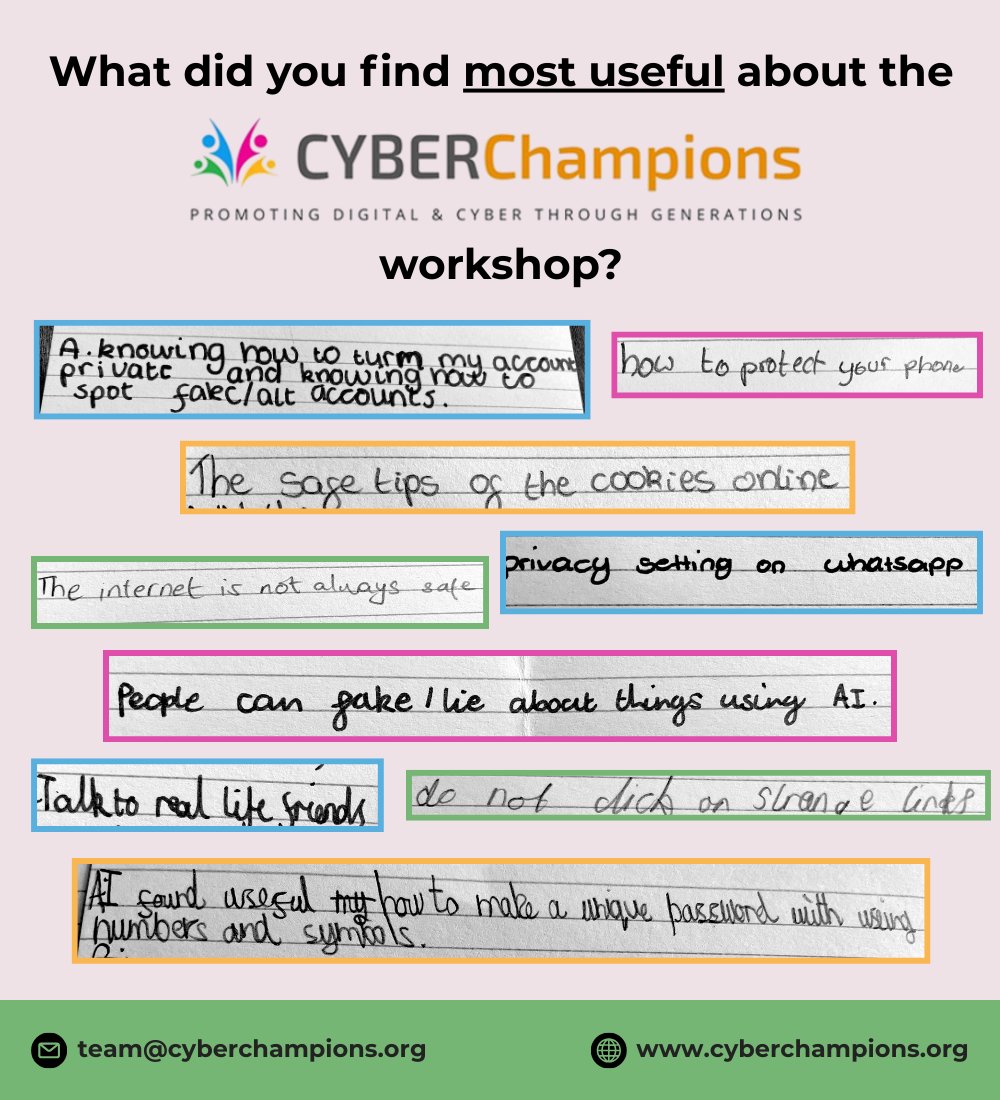 What did you find most useful about the
CYBERChampions
PROMOTING DIGITAL & CYBER THROUGH GENERATIONS
workshop?
A. knowing how to turm my account
private and knowing how to
spot fake/alt accounts.
how to protect your phone
The sage tips of the cookies online
The internet is not always safe
privacy setting on whatsapp
People can fake / lie about things using AI.
Talk to real life friends
do not click on strange links
AI found useful my how to make a unique password with using
numbers and symbols.
team@cyberchampions.org
www.cyberchampions.org